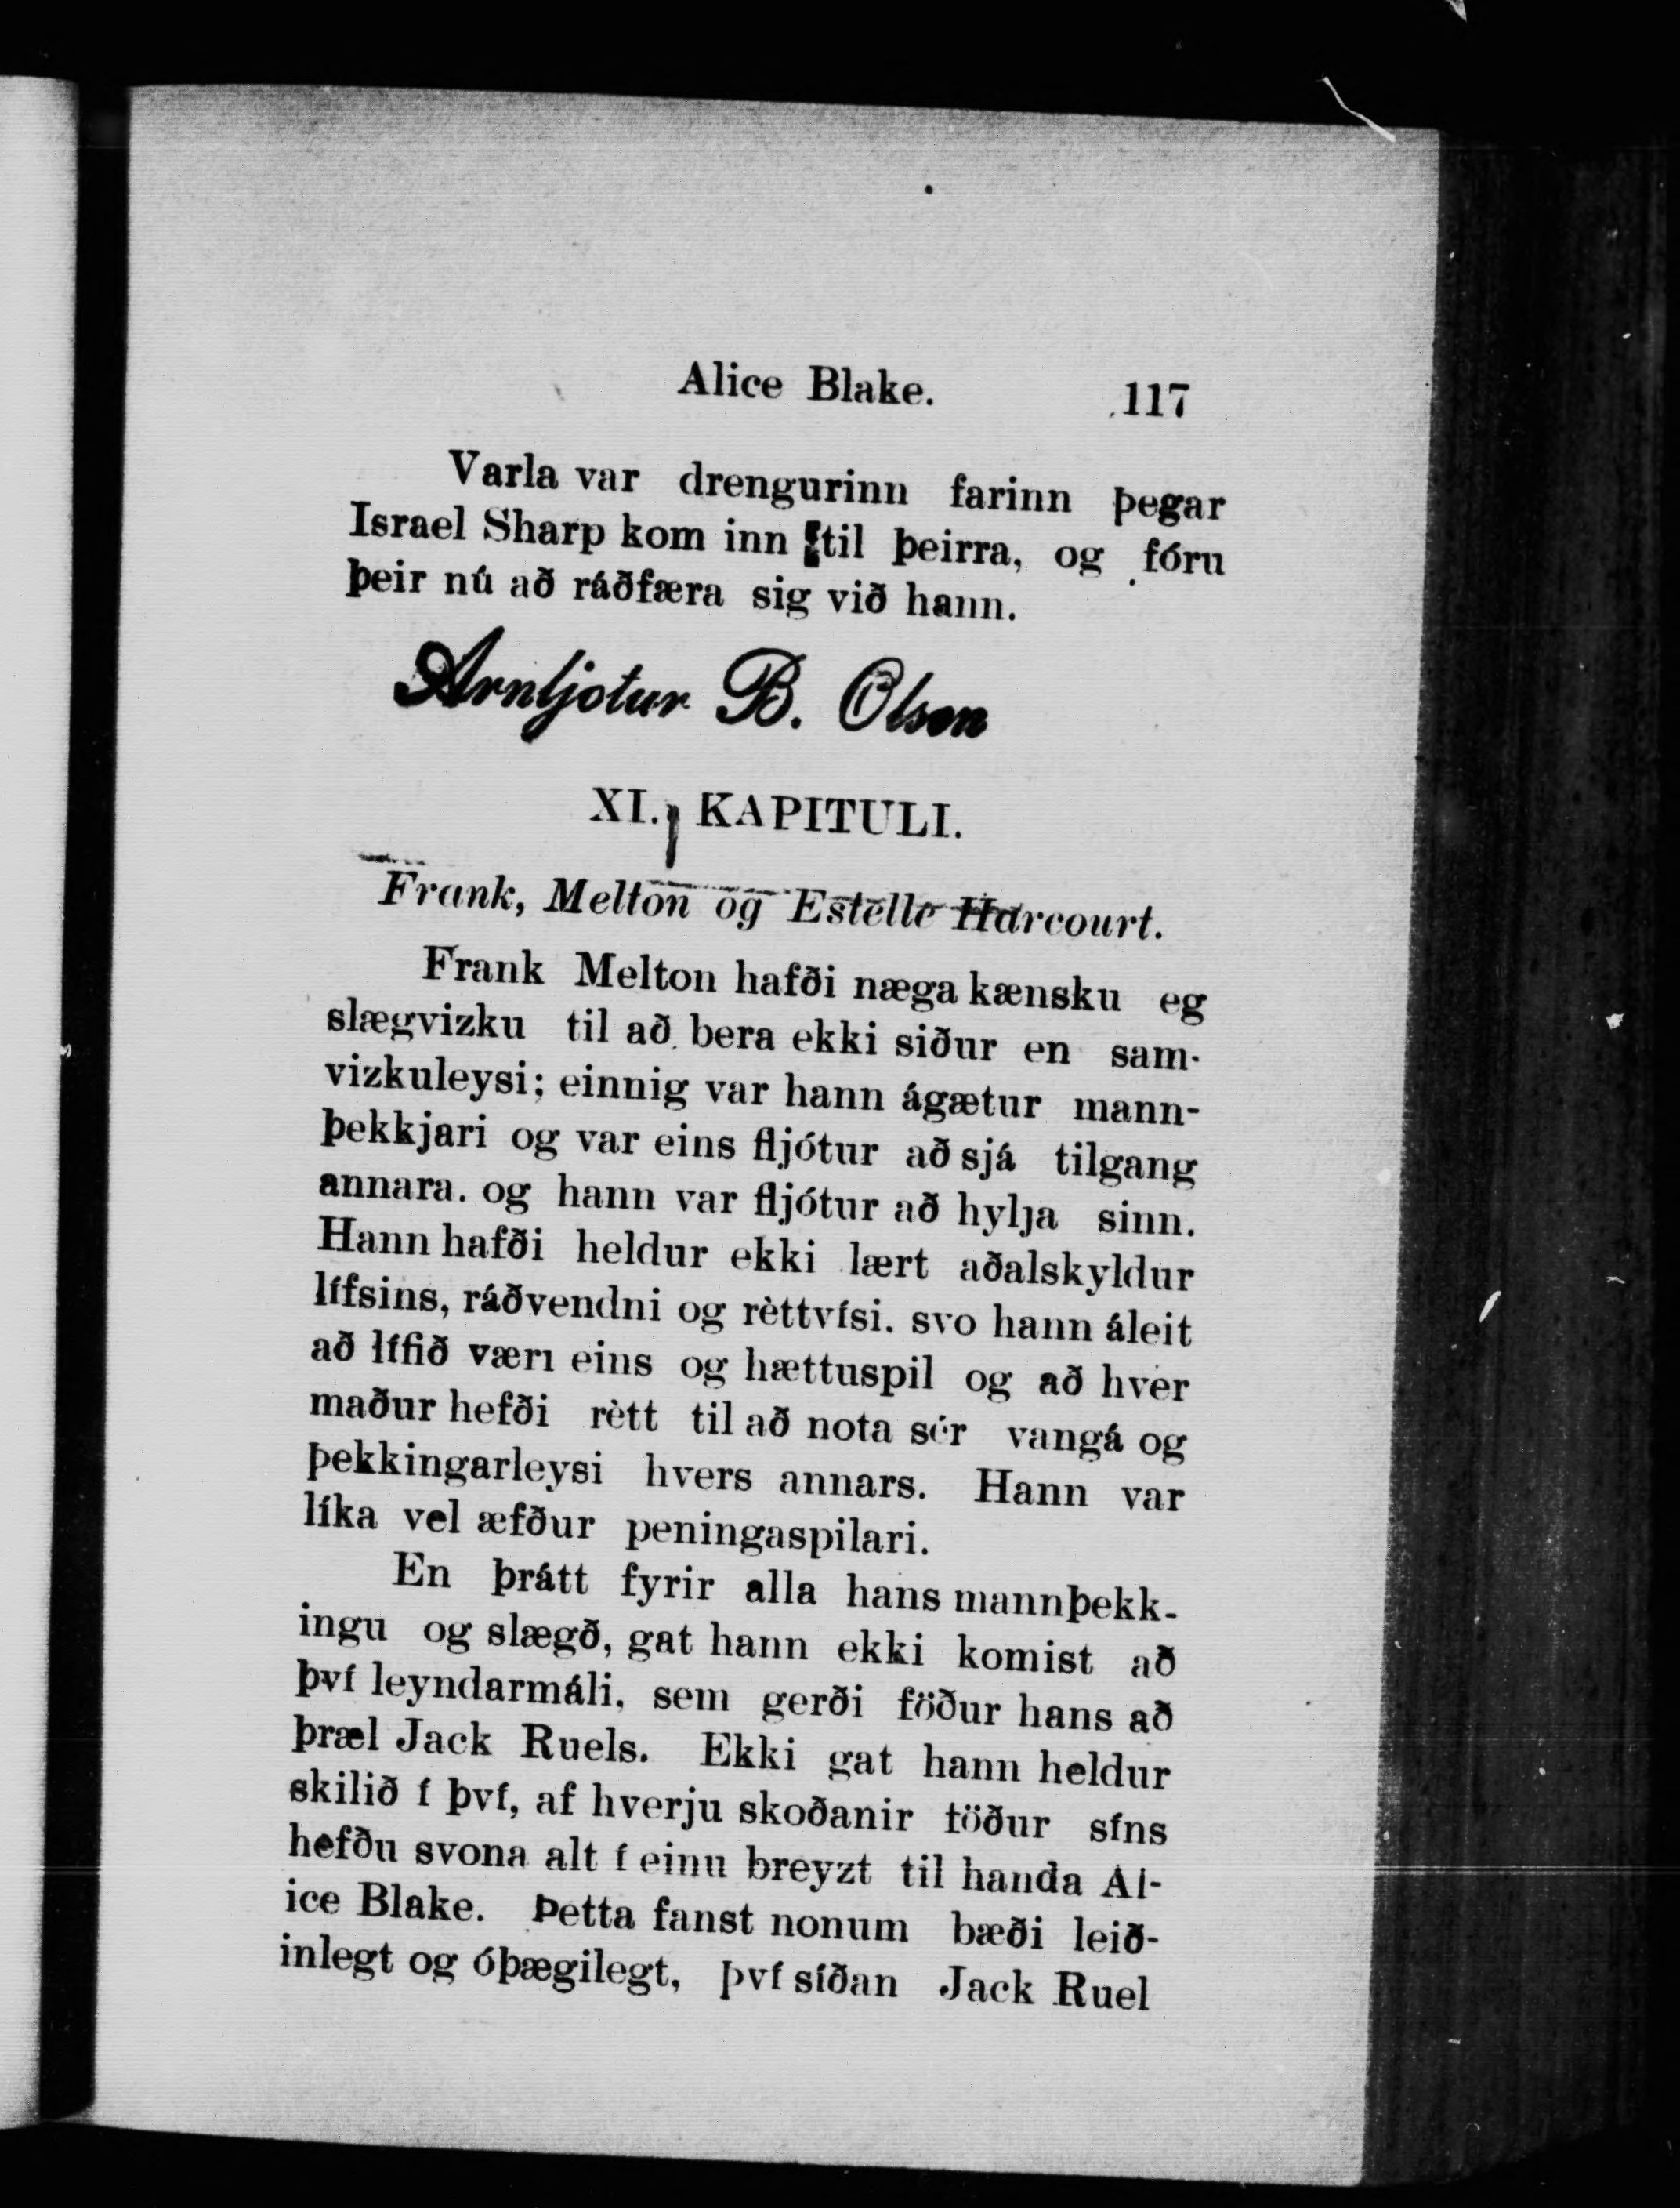 Alice Blake. 117
Varla var drengurinn farinn þegar
Israel Sharp kom inn til þeirra, og fóru
þeir nú að ráðfæra sig við hann.
Arnljotur B. Olson
XI. KAPITULI.
Frank, Melton og Estelle Harcourt.
Frank Melton hafði næga kænsku eg
slægvizku til að bera ekki siður en sam-
vizkuleysi; einnig var hann ágætur mann-
þekkjari og var eins fljótur að sjá tilgang
annara. og hann var fljótur að hylja sinn.
Hann hafði heldur ekki lært aðalskyldur
lífsins, ráðvendni og rèttvísi. svo hann áleit
að lífið væri eins og hættuspil og að hver
maður hefði rètt til að nota sér vangá og
þekkingarleysi hvers annars. Hann var
líka vel æfður peningaspilari.
En þrátt fyrir alla hans mannþekk-
ingu og slægð, gat hann ekki komist að
því leyndarmáli, sem gerði föður hans að
þræl Jack Ruels. Ekki gat hann heldur
skilið í því, af hverju skoðanir föður síns
hefðu svona alt í einu breyzt til handa Al-
ice Blake. Þetta fanst honum bæði leið-
inlegt og óþægilegt, því síðan Jack Ruel